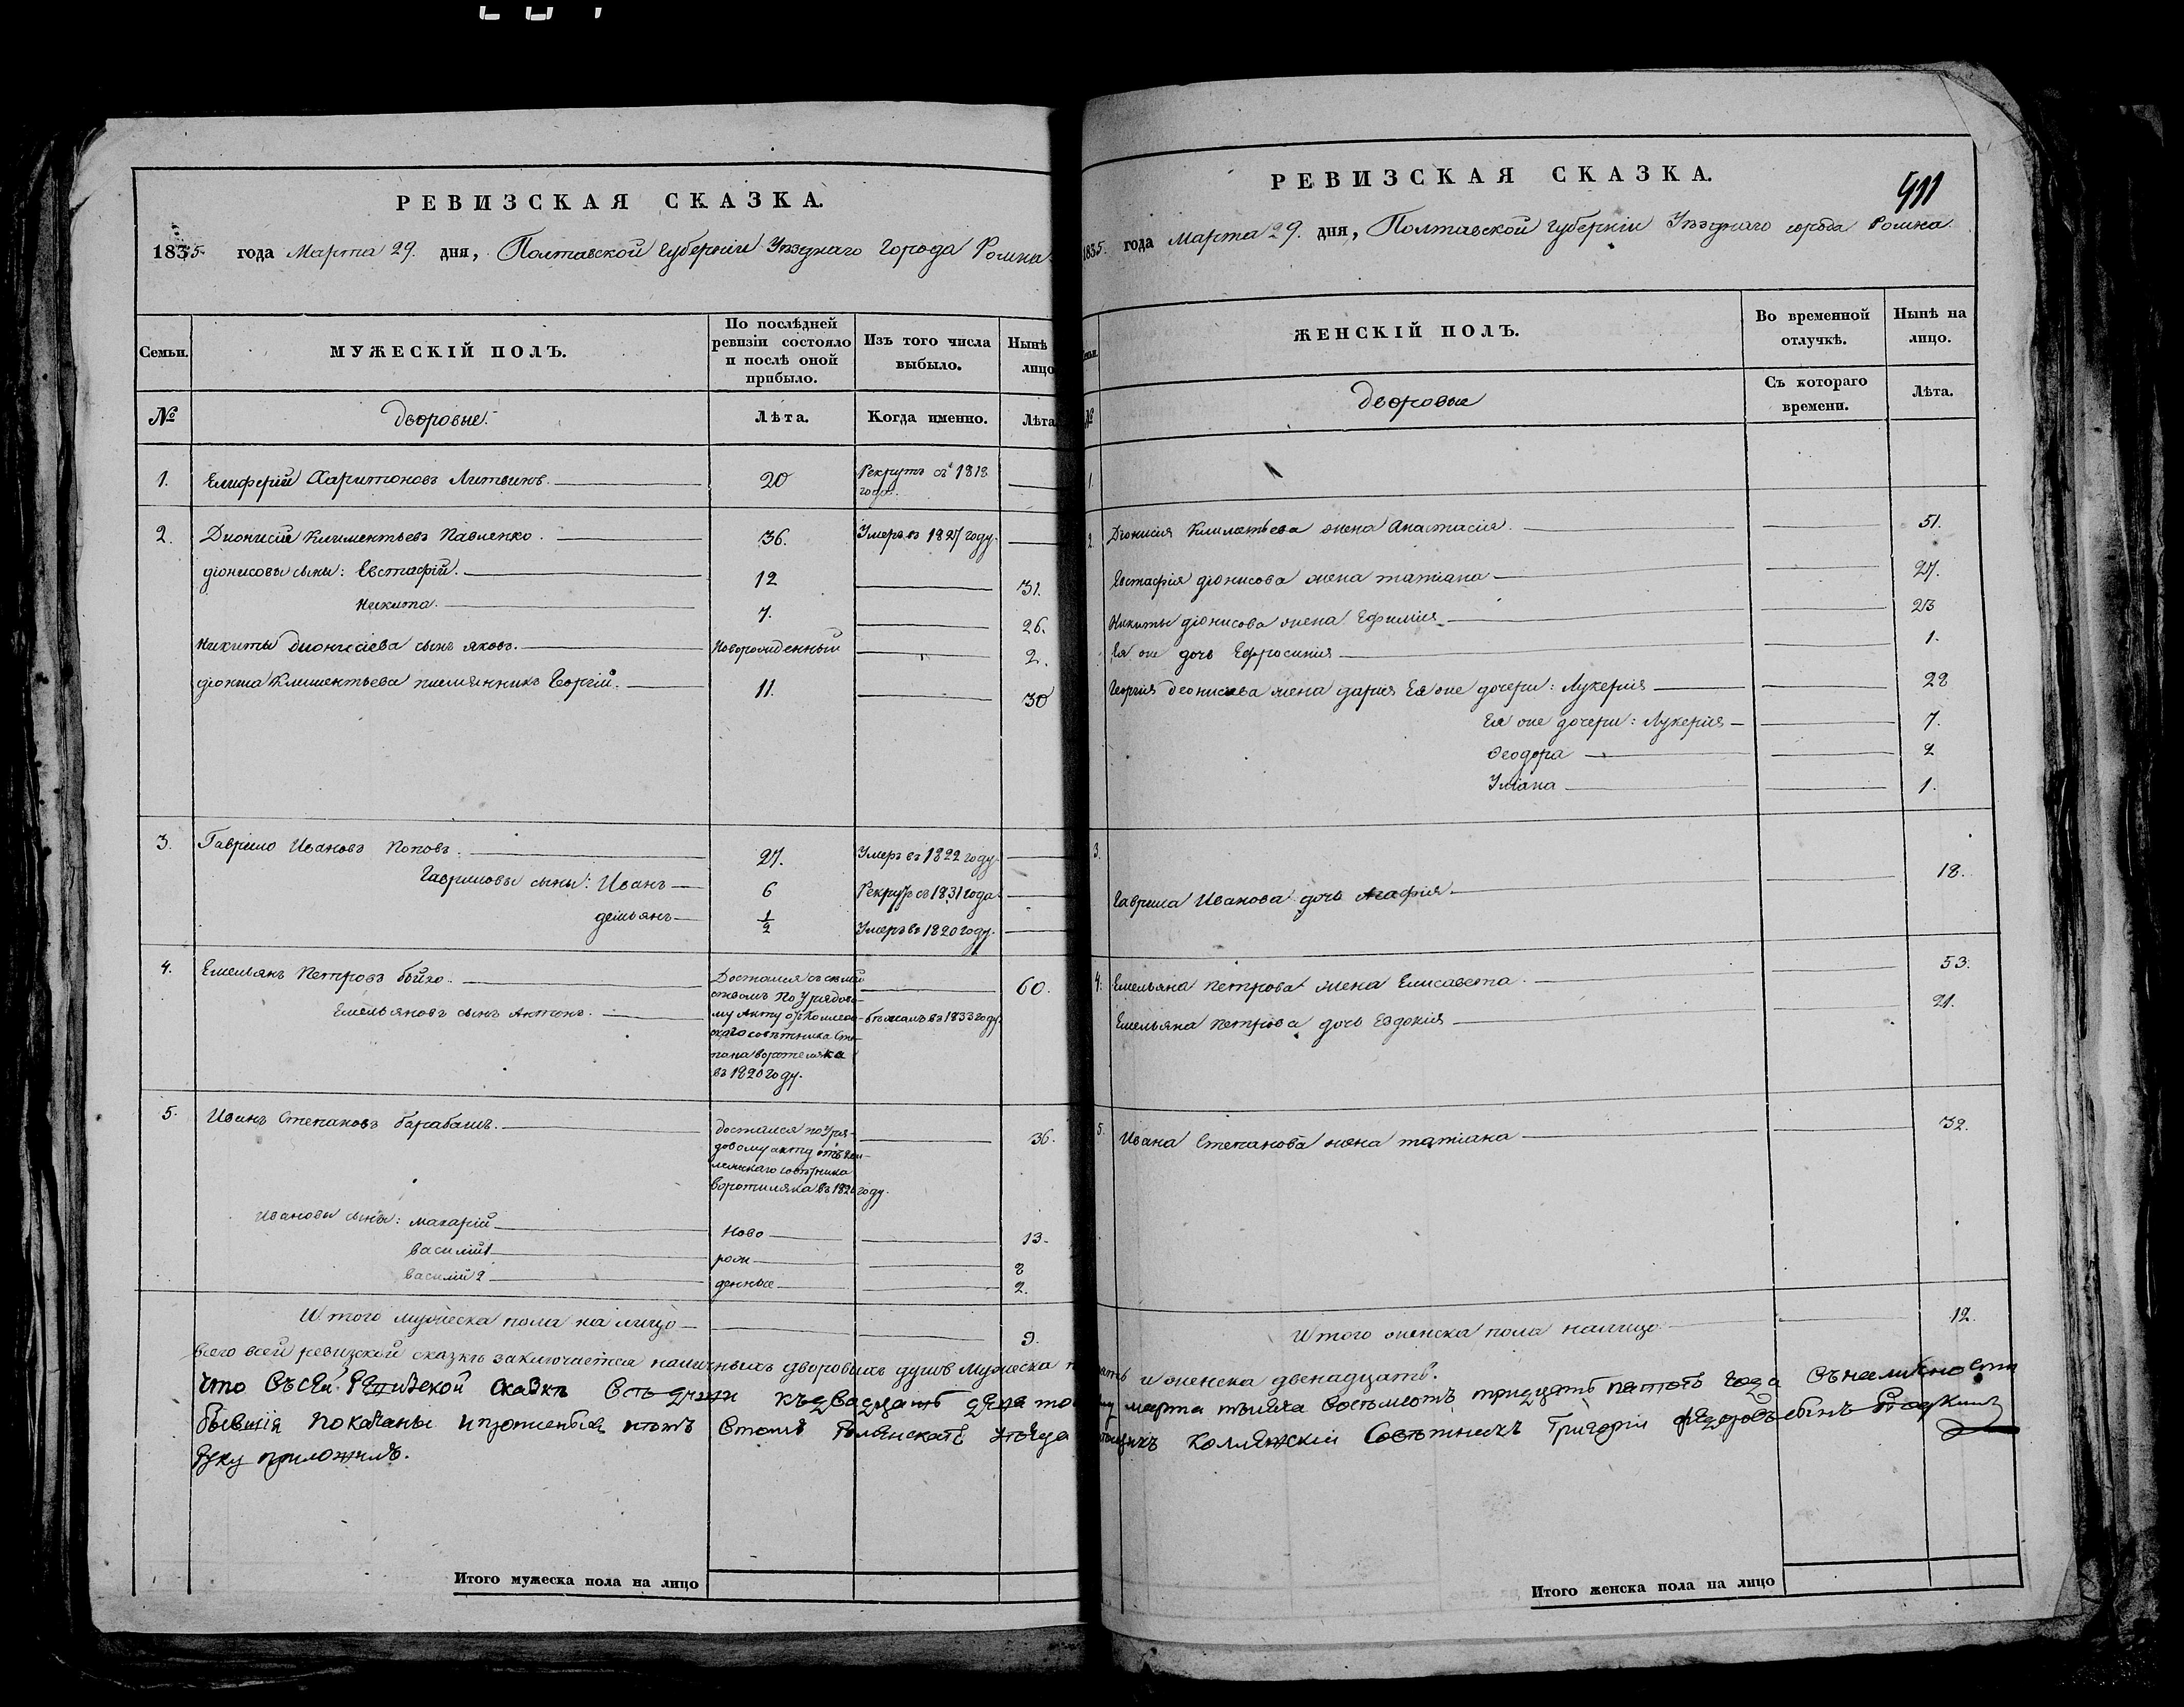 РЕВИЗСКАЯ СКАЗКА.
1835 года Марта 29. дня, Полтавской Губерніи Уѣзднаго Города Ромна
Семьи.
МУЖЕСКІЙ ПОЛЪ.
По послѣдней ревизіи состояло и послѣ оной прибыло.
Изъ того числа выбыло.
Нынѣ лицо
№
Дворовые.
Лѣта.
Когда именно.
Лѣта
1. Елиферій Харитоновъ Литвинъ. 20 Рекрутъ съ 1818 года.
2. Дионисій Климентьевъ Павленко. 36. Умеръ въ 1827 году.
діонисовы сыны: Евстафій. 12 31.
Никита. 7. 26.
Никиты Дионисіева сынъ яковъ. Новорожденный 2.
діонисія Климентьева племянникъ Георгій. 11. 30
3. Гаврило Ивановъ Поповъ. 27. Умеръ въ 1822 году.
Гавриловы сыны: Иванъ 6 Рекрутъ съ 1831 года.
демьянъ 1/2 Умеръ въ 1820 году.
4. Емельянъ Петровъ 60.
Достался съ семей
ствомъ По Урядово-
му Акту отъ Коллеж-
скаго совѣтника Сте-
пана воротеляка
въ 1820 году.
Емельяновъ сынъ Антонъ. бѣжалъ въ 1833 году.
5. Иванъ Степановъ барабашъ. 36.
достался по Уря-
довому акту отъ Кол-
лежскаго совѣтника
воротиляка въ 1820 году.
Ивановы сыны: макарій Ново 13.
василій 1 рож 8
василій 2 денные 2.
Итого мужеска пола на лицо 9.
Всего всей ревизской сказкѣ заключается наличныхъ дворовыхъ душъ Мужеска
что въ сей Ревизской сказкѣ
бывшія показаны
руку приложилъ.
Итого мужеска пола на лицо
РЕВИЗСКАЯ СКАЗКА.
411
1835. года Марта 29. дня, Полтавской Губерніи Уѣзднаго города Ромна.
ЖЕНСКІЙ ПОЛЪ.
Во временной отлучкѣ.
Нынѣ на лицо.
№
Дворовые
Съ котораго времени.
Лѣта.
1.
2. Діонисія Климентьева жена Анастасія. 51.
Евстафія діонисова жена татіана 27.
Никиты діонисова жена Ефимія 23
Ея же дочь Ефросинія 1.
Георгія деонисьева жена дарія Ея же дочери: Лукерія 28
Ея же дочери: Лукерія 7.
Феодора 2
Уліана 1.
3.
Гаврила Иванова дочь Агафія 18.
4. Емельяна петрова жена Елисавета 53.
Емельяна петрова дочь Евдокія 21.
5. Ивана Степанова жена татіана 32.
Итого женска пола налицо 12.
и женска двенадцать.
марта тысяча восемьсотъ тридцать пятого года
Колежскій Совѣтникъ Григорій Федоровъ сынъ
Итого женска пола на лицо